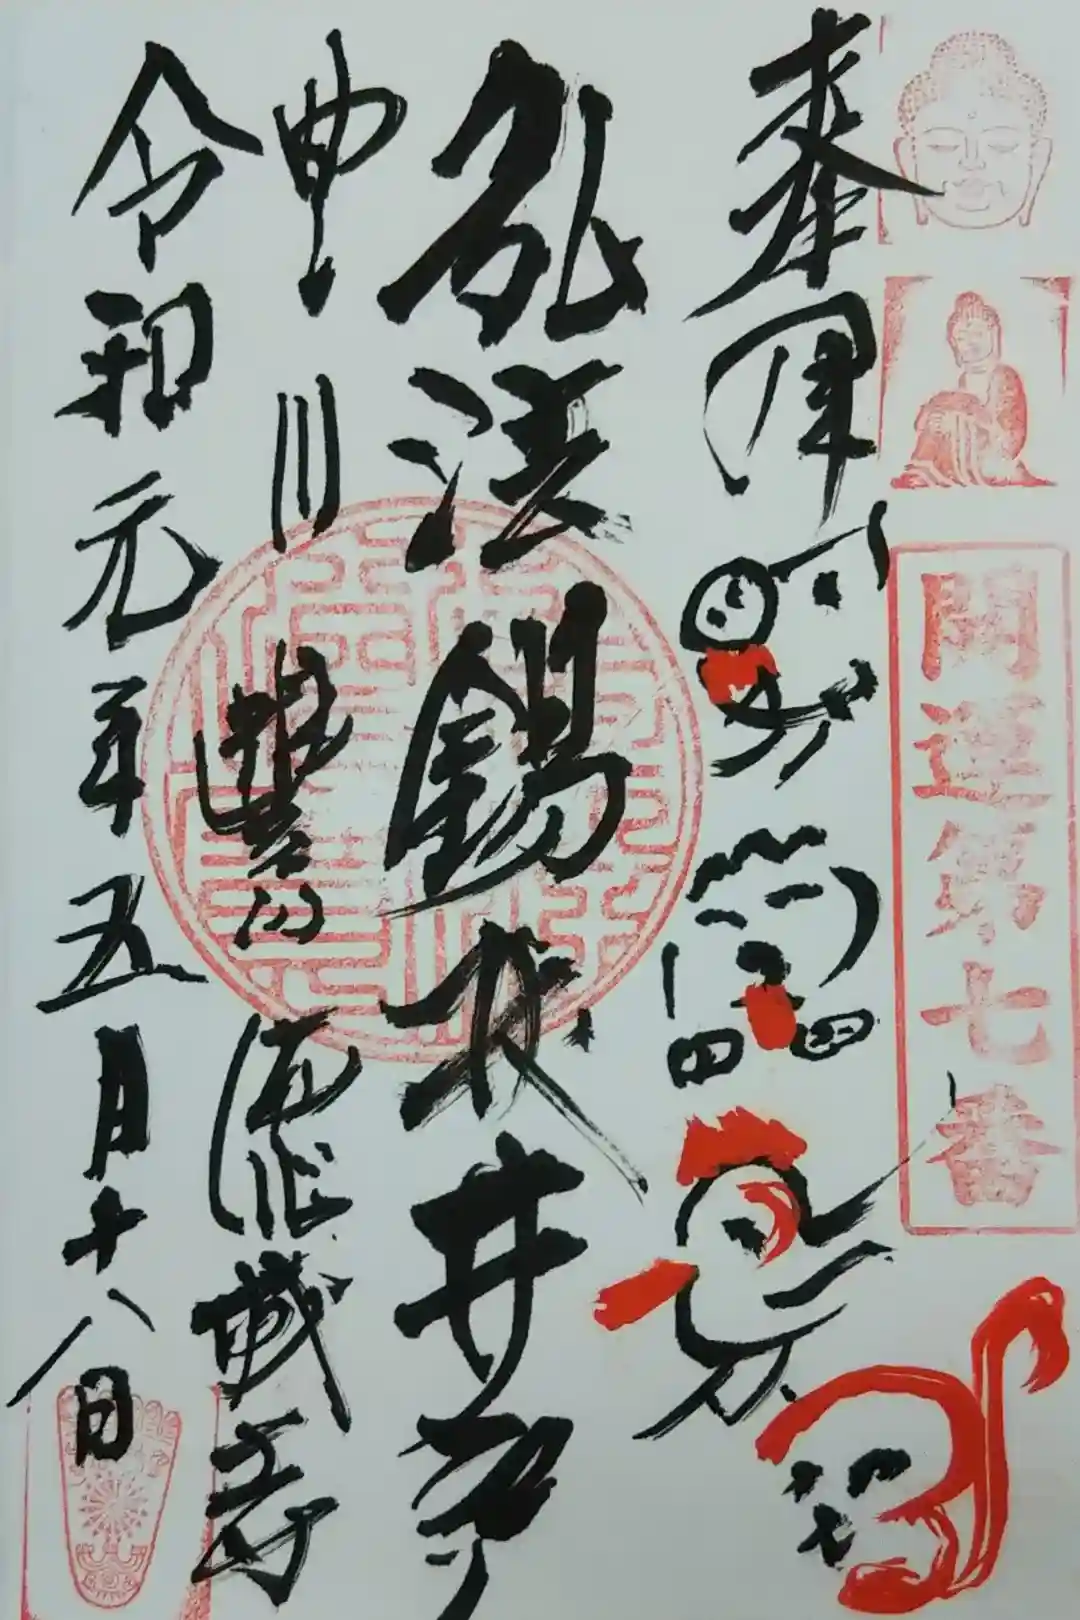 開運第七番
奉拝
弘法錫杖井戸
豊川 徳城寺
令和元年五月十八日